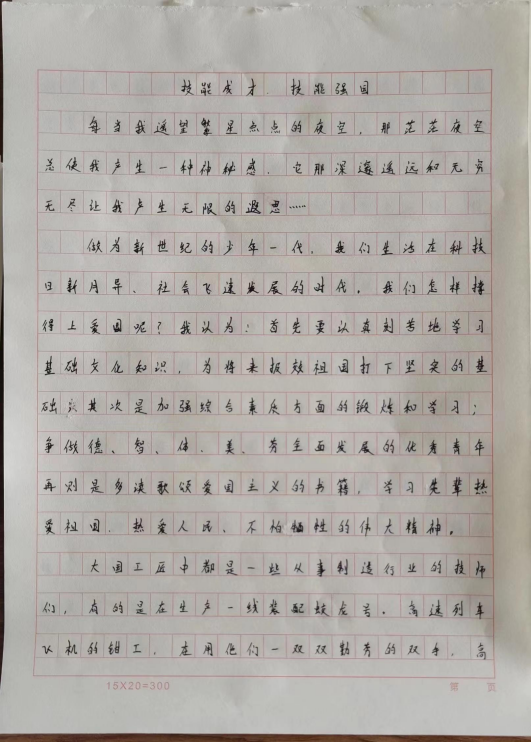 技能成才、技能强国
每当我遥望繁星点点的夜空,那茫茫夜空
总使我产生一种神秘感,它那深邃遥远和无穷
无尽让我产生无限的遐思……
做为新世纪的少年一代,我们生活在科技
日新月异、社会飞速发展的时代,我们怎样撑
得上爱国呢?我认为:首先要认真刻苦地学习
基础文化知识,为将来报效祖国打下坚实的基
础;其次是加强综合素质方面的锻炼和学习;
争做德、智、体、美、劳全面发展的优秀青年
再则是多读歌颂爱国主义的书籍,学习先辈热
爱祖国、热爱人民、不怕牺牲的伟大精神。
大国工匠中都是一些从事制造行业的技师
们,有的是在生产一线装配蛟龙号、高速列车
飞机的钳工,在用他们一双双勤劳的双手,高
15X20=300
第 页